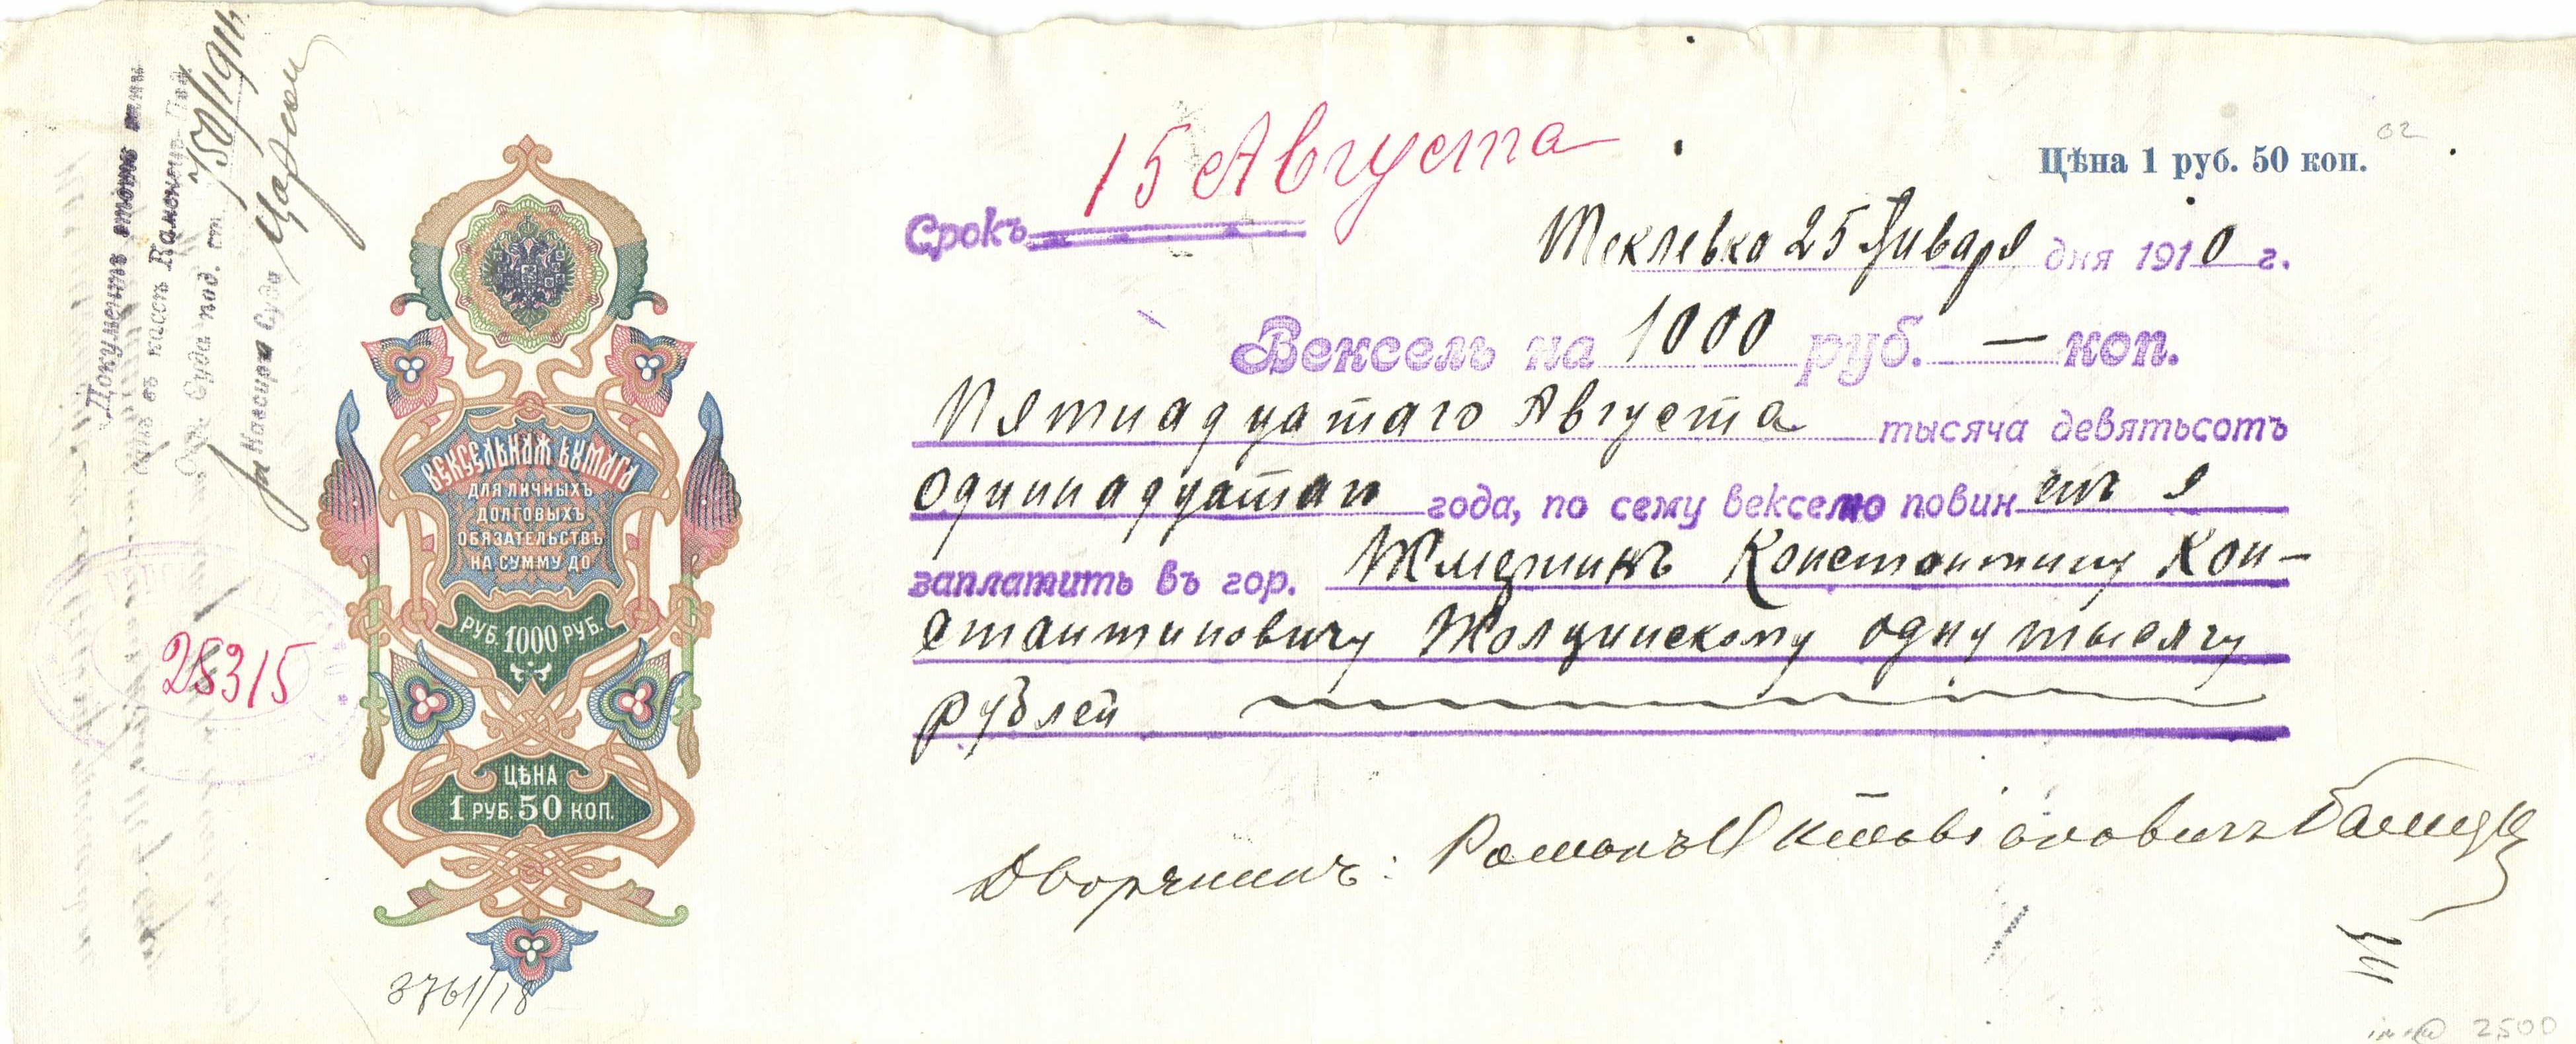 Цѣна 1 руб. 50 коп.
02
Срокъ 15 Августа
Теклевка 25 Января дня 1910 г.
Вексель на 1000 руб. — коп.
Пятнадцатаго Августа тысяча девятьсотъ
одиннадцатаго года, по сему векселю повиненъ я
заплатить въ гор. Константину Кон-
стантиновичу одну тысячу
рублей
Дворянинъ: Романъ Октавіановичъ
ВЕКСЕЛЬНАЯ БУМАГА
ДЛЯ ЛИЧНЫХЪ
ДОЛГОВЫХЪ
ОБЯЗАТЕЛЬСТВЪ
НА СУММУ ДО
РУБ. 1000 РУБ.
ЦѢНА
1 РУБ. 50 КОП.
3761/18
28315
Документъ этотъ
въ кассѣ
Суда под. ст. 750/1911
Суда
2500